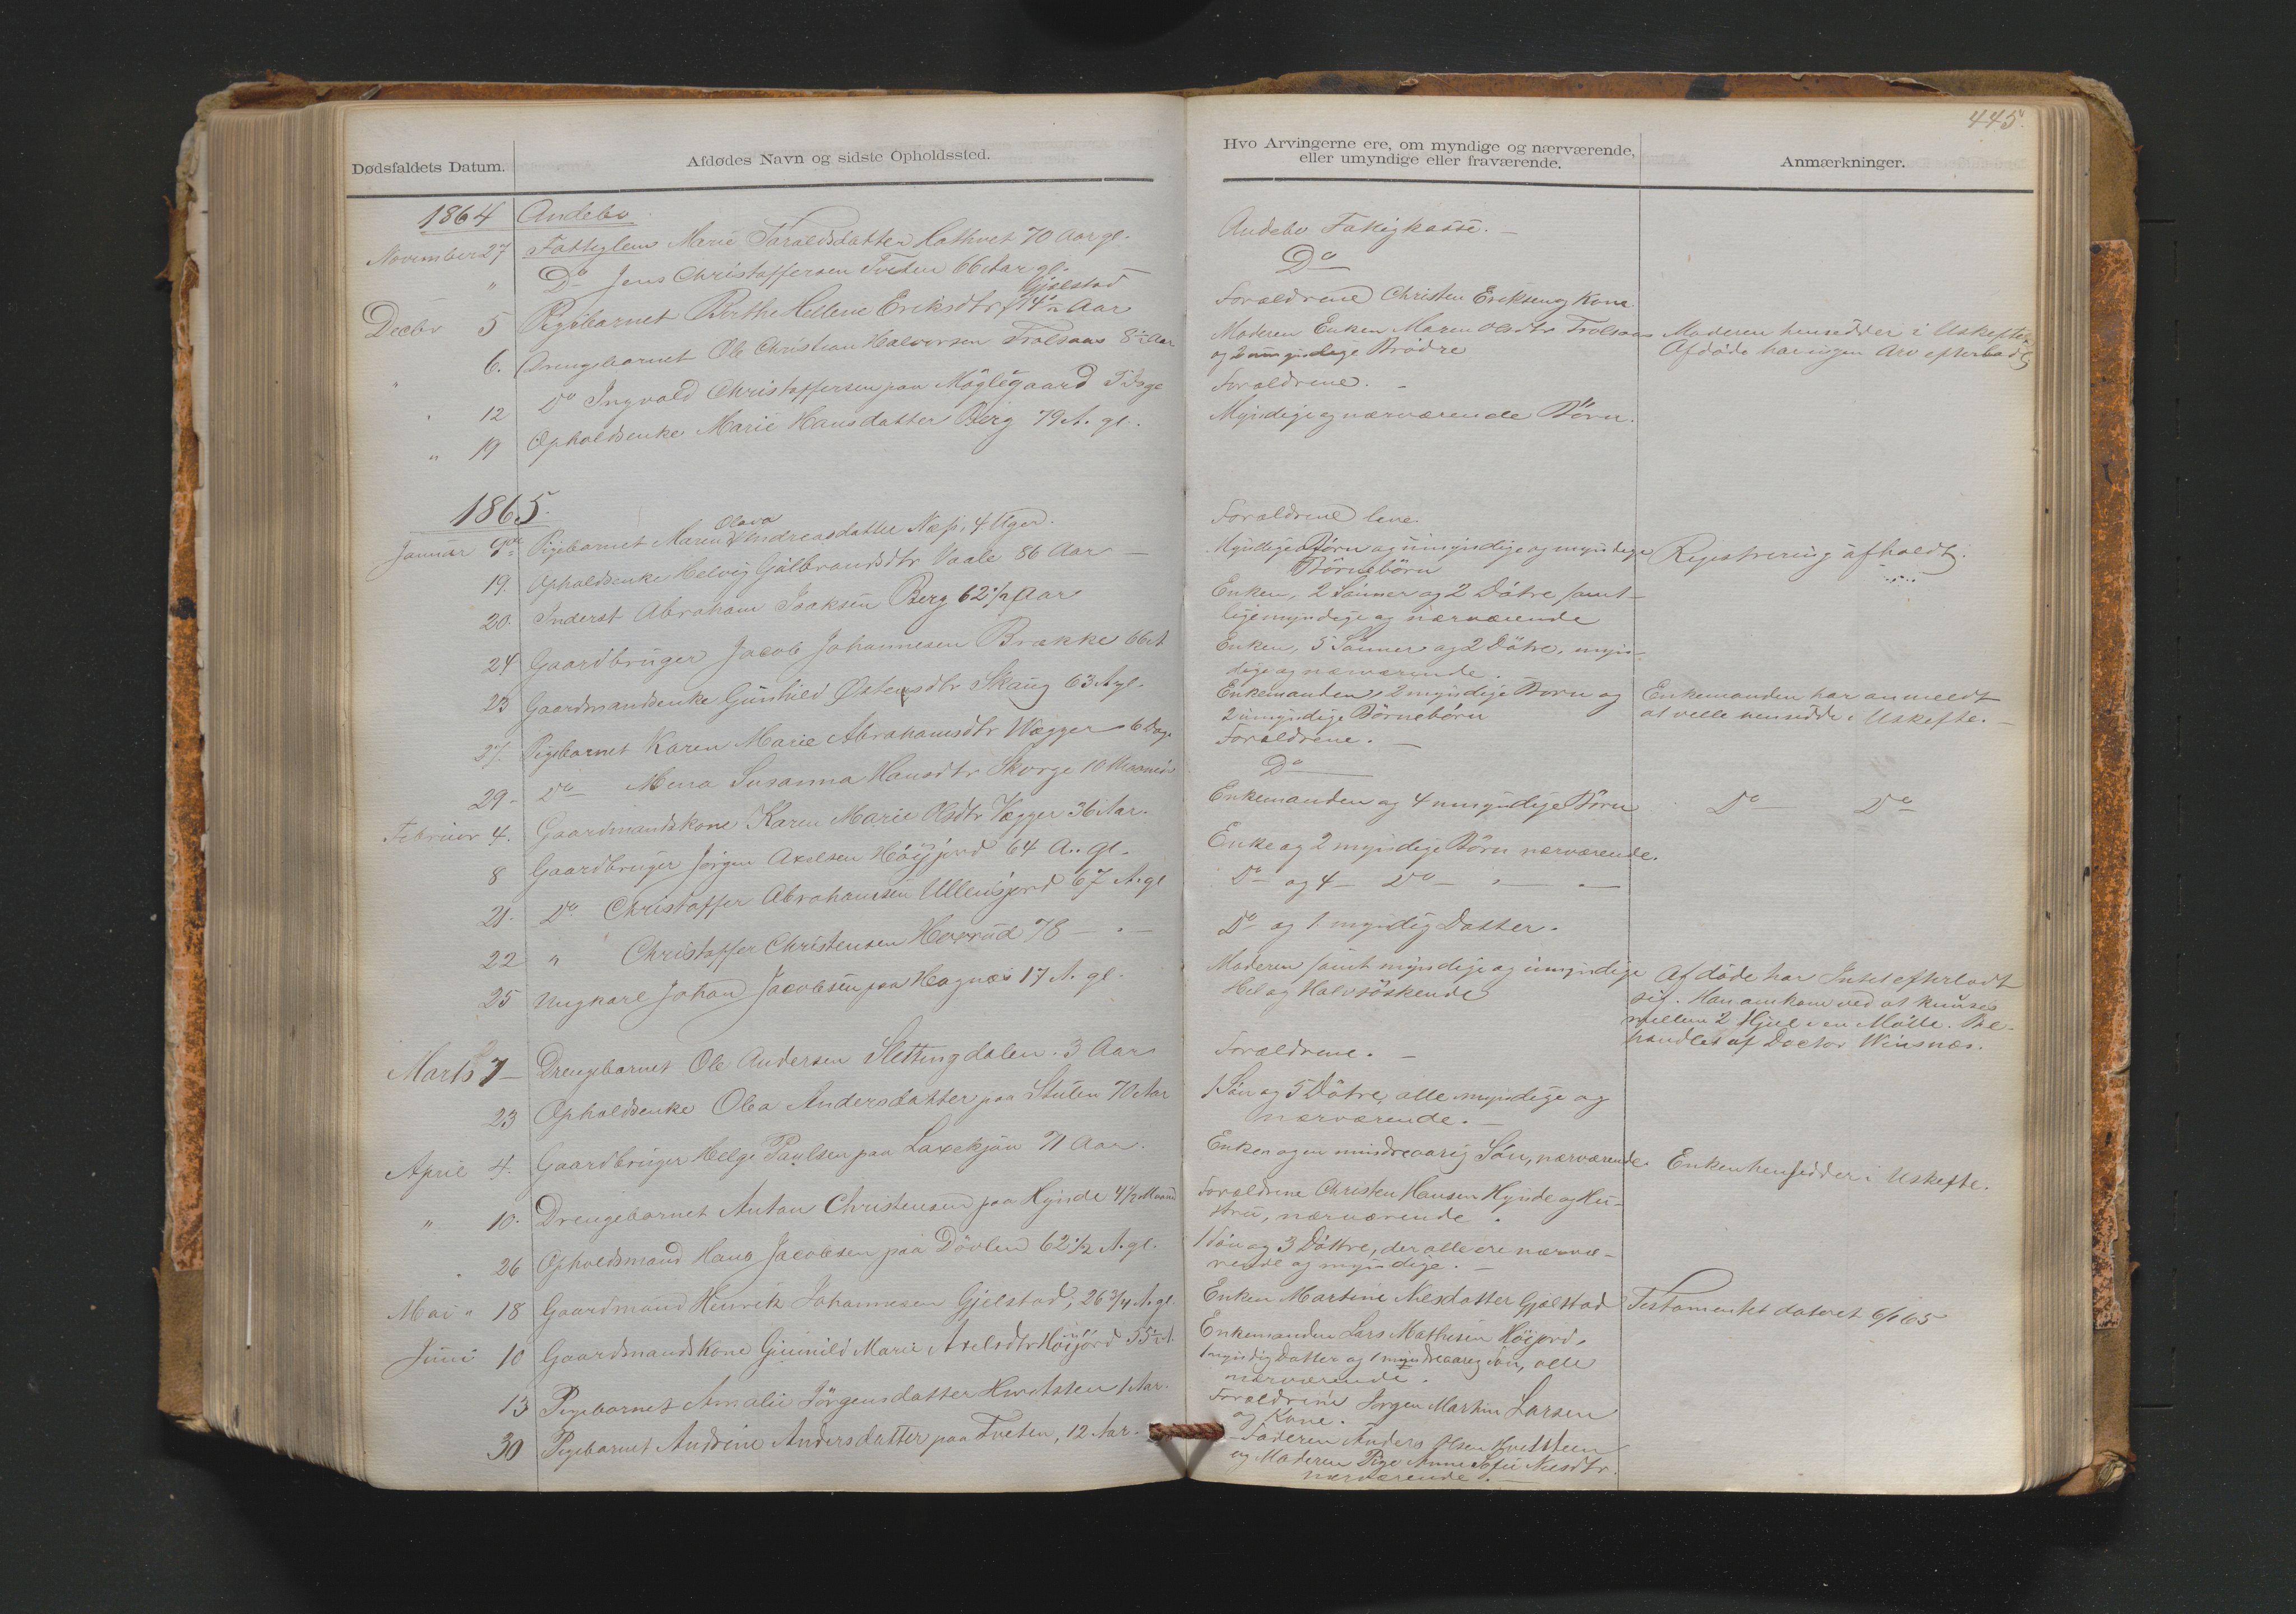 445.
Dødsfaldets Datum.
Afdødes Navn og sidste Opholdssted.
1864 Andebu
November 27 Fattiglem Marie Taraldsdatter Hathvet 70 Aar gl.
" Do Jens Christoffersen Tveden 66 Aar gl.
Gjelstad
Decbr 5 Pigebarnet Berthe Hellene Eriksdtr 14 1/2 Aar
6. Drengebarnet Ole Christian Halvorsen Trolsaas 8 1/2 Aar
" 12 Do Ingvald Christoffersen paa Møglegaard
" 19 Opholdsenke Marie Hansdatter Berg 79 A. gl.
1865.
Olava
Januar 9de Pigebarnet Maren Andreasdatter Næss, 4 Uger.
19. Opholdsenke Helvig Gulbrandsdtr Vaale 86 Aar
20. Inderst Abraham Isaksen Berg 62 1/2 Aar
24 Gaardbruger Jacob Johannesen Brække 66 A
23 Gaardmandsenke Gunhild Østensdtr Skaug 63 A gl.
27. Pigebarnet Karen Marie Abrahamsdtr Wegger 6 Dage
29. Do Mina Susanna Hansdtr Skorge 10 Maaned
Februar 4. Gaardmandskone Karen Marie Olsdtr Vegger 36 Aar.
8 Gaardbruger Jørgen Axelsen Høyjord 64 A. gl.
21. Do Christoffer Abrahamsen Ullensjord 67 A. gl
22 " Christoffer Christensen Hoverud 78 - " -
25 Ungkarl Johan Jacobsen paa Hagnæs 17 A. gl.
Marts 7 Drengebarnet Ole Andersen Slettingdalen. 3 Aar
23 Opholdsenke Olea Andersdatter paa Stulen 70 Aar
April 4. Gaardbruger Helge Paulsen paa Laxekjøn 71 Aar.
" 10. Drengebarnet Anton Christensen paa Hynde 4 1/2 Maaned
" 26 Opholdsmand Hans Jacobsen paa Døvlen 62 1/2 A. gl.
Mai " 18 Gaardmand Henrik Johannesen Gjelstad, 26 3/4 A. gl.
Juni 10 Gaardmandskone Gunild Marie Axelsdtr Høijord 55 1/2 A.
13 Pigebarnet Amalie Jörgensdatter 1 Aar.
30 Pigebarnet Andrine Andersdatter paa Tveten, 12 Aar.
Hvo Arvingerne ere, om myndige og nærværende,
eller umyndige eller fraværende.
Anmærkninger.
Andebu Fattigkasse.
Do
Forældrene Christen Eriksen og Kone.
Moderen Enken Maren Olsdtr Trolsaas Moderen hensidder i Uskifte.
og 2 umyndige Brødre Afdøde har ingen Arv efterladt
Forældrene.
Myndige og nærværende Börn.
Forældrene leve.
Myndige Börn og umyndige og myndige Registrering afholdt.
Börnebörn
Enken, 2 Sönner og 2 Døtre samt-
lige myndige og nærværende
Enken, 5 Sønner og 2 Døtre, myn-
dige og nærværende.
Enkemanden, 2 myndige Born og Enkemanden har anmeldt
2 umyndige Börnebörn at ville hensidde i Uskifte.
Forældrene.
Do
Enkemanden og 4 umyndige Børn Do Do
Enke og 2 myndige Börn nærværende.
Do og 4 Do " "
Do og 1 myndig Datter.
Moderen samt myndige og umyndige Afdøde har Intet efterladt
Hel og Halvsøskende sig. Han omkom ved at knuses
mellem 2 Hjul i en Mölle. Be-
handlet af Doctor Winsnæs.
Forældrene.
1 Søn og 5 Døtre, alle myndige og
nærværende.
Enken og en mindreaarig Søn, nærværende. Enken hensidder i Uskifte.
Forældrene Christen Hansen Hynde og Hu-
stru, nærværende.
1 Søn og 3 Døttre, der alle ere nærvæ-
rende og myndige.
Enken Martine Nilsdatter Gjelstad Testamentet dateret 6/1 65
Enkemanden Lars Mathisen Höijord,
1 myndig Datter og 1 mindreaarig Søn, alle
nærværende.
Forældrene Jörgen Martin Larsen
og Kone.
Faderen Anders Olsen
og Moderen Pige Anne Sofie Nilsdtr.
nærværende.